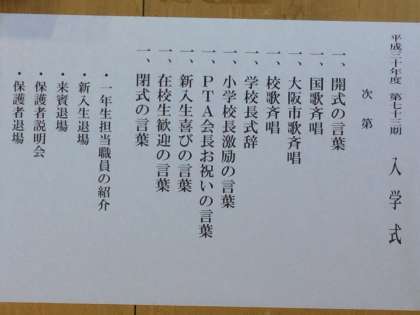 平成三十年度　第七十三期
入学式
次第
一、開式の言葉
一、国歌斉唱
一、大阪市歌斉唱
一、校歌斉唱
一、学校長式辞
一、小学校長激励の言葉
一、ＰＴＡ会長お祝いの言葉
一、新入生喜びの言葉
一、在校生歓迎の言葉
一、閉式の言葉
・一年生担当職員の紹介
・新入生退場
・来賓退場
・保護者説明会
・保護者退場